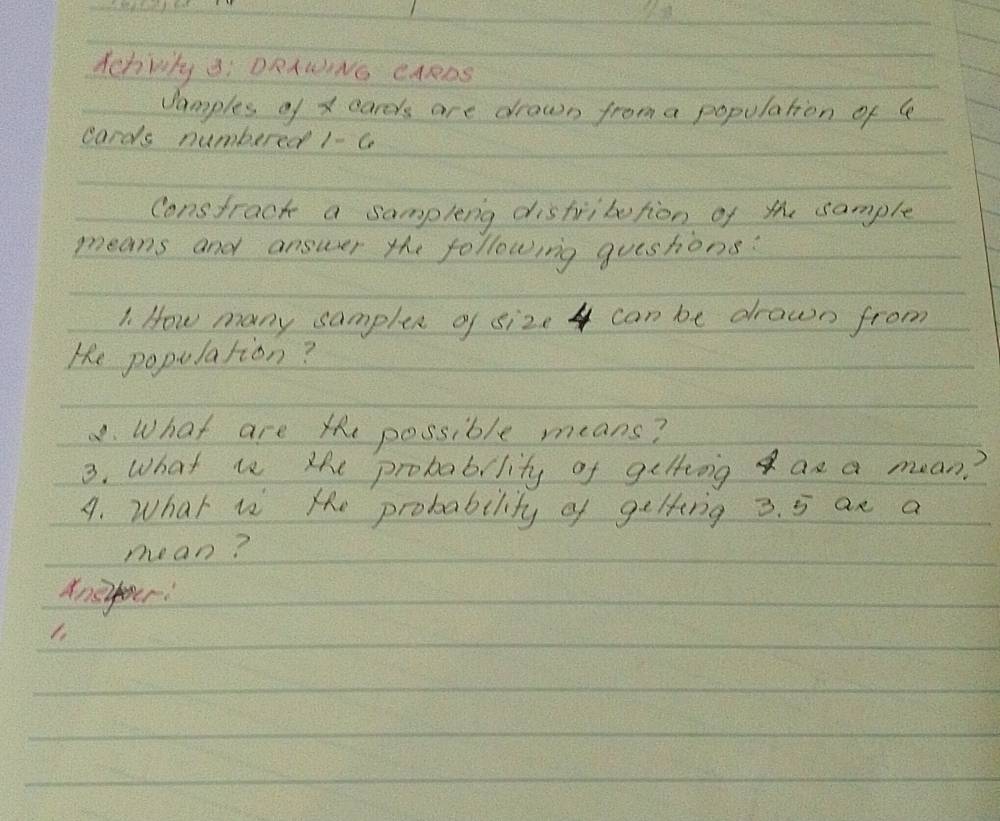 Activity 3: DRAWING CARDS
Samples of cards are drawn from a population of 6
cards numbered 1-6
Constract a sampleng distribution of the sample
means and answer the following questions:
1. How many samples of size 4 can be drawn from
the population?
2. What are the possible means?
3. What is the probability of getting 4 as a mean?
4. What is the probability of getting 3.5 as a
mean?
Answer:
1.